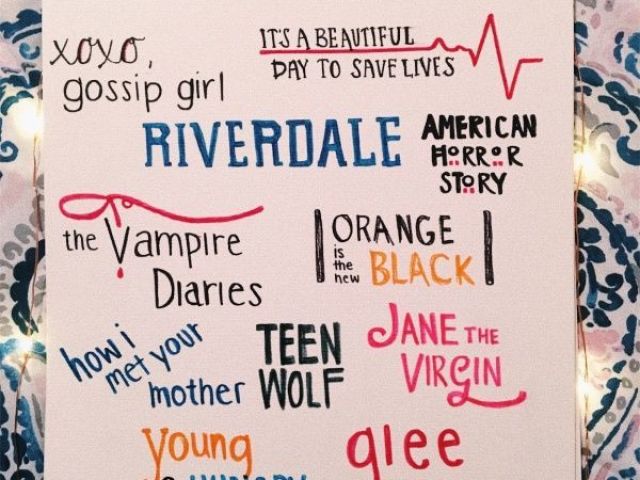 xoxo,
gossip girl
IT'S A BEAUTIFUL
DAY TO SAVE LIVES
RIVERDALE
AMERICAN
HORROR
STORY
the Vampire
Diaries
ORANGE
is
the
new
BLACK
how i
met your
mother
TEEN
WOLF
JANE THE
VIRGIN
young
glee